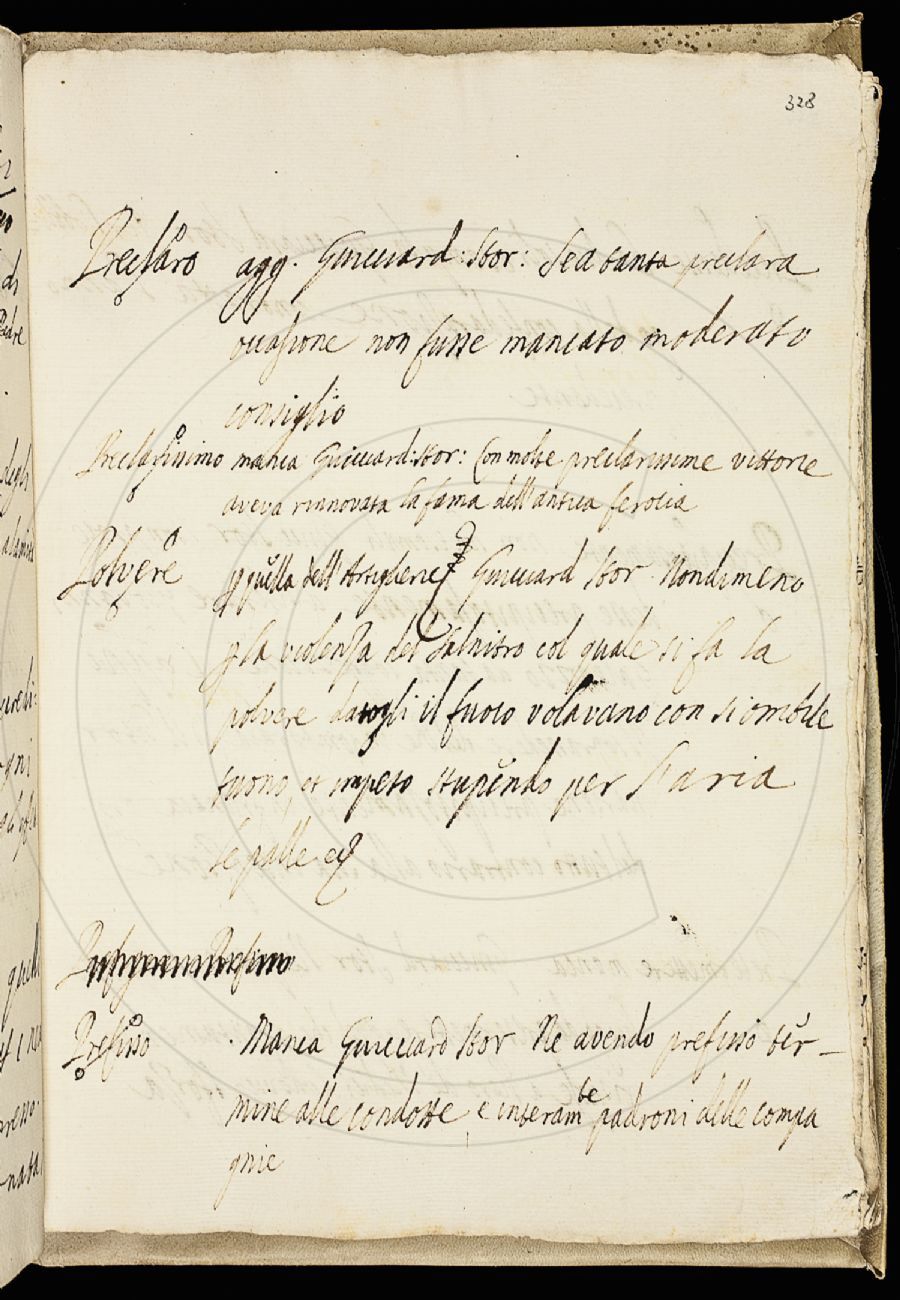 328
Preclaro agg. Guicciard: Stor: Se a tanta preclara
occasione non fusse mancato moderato
consiglio
Preclarissimo manca Guicciard: Stor: Con molte preclarissime vittorie
aveva rinnovata la fama dell'antica ferocia
Polvere p quella dell'Artiglierie Guicciard Stor. Nondimeno
p la violenza del salnitro col quale si fa la
polvere datogli il fuoco volavano con si orribile
tuono, et impeto stupendo per l'aria
le palle
Prefisso . Manca Guicciard Stor Ne avendo prefisso ter-
mine alle condotte, e interamte padroni delle compa
gnie